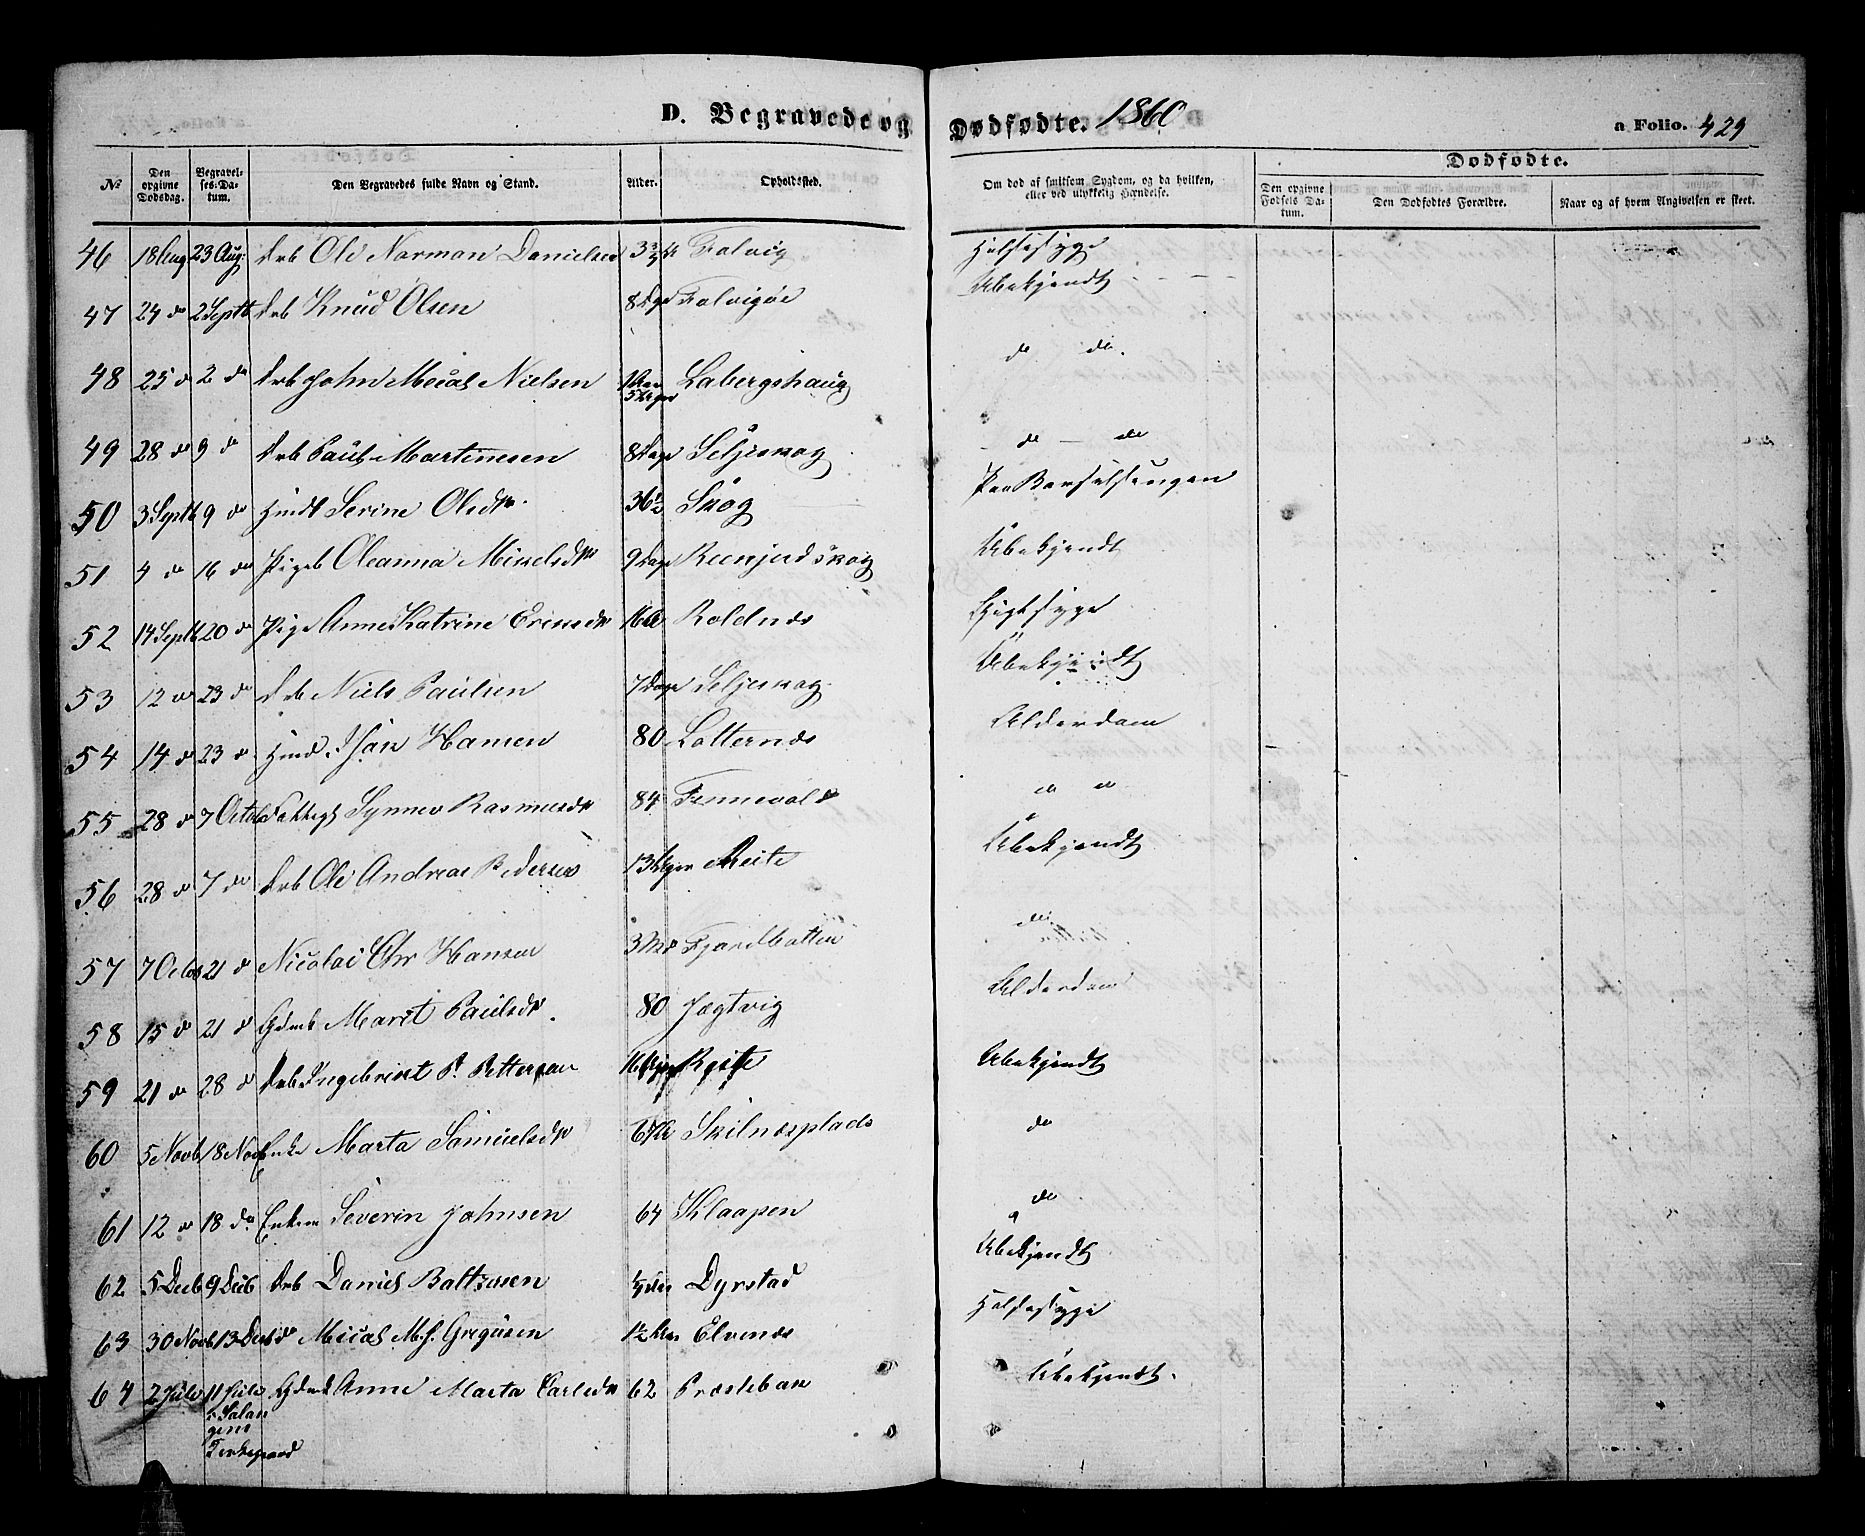 D. Begravede og Dødfødte. 1860 a Folio. 429
Dødfødte.
№ Den opgivne Dødsdag. Begravelses-Datum. Den Begravedes fulde Navn og Stand. Alder. Opholdssted. Om død af smitsom Sygdom, og da hvilken, eller ved ulykkelig Hændelse. Den opgivne Fødsels Datum. Den Dødfødtes Forældre. Naar og af hvem Angivelsen er skeet.
46 18 Aug 23 Aug: drb Ole Norman Danielsen 3 3/4 Falvig Halssyge
47 24 do 2 Septb drb Knud Olsen 8 Dge Falvigøe Ubekjendt
48 25 d 2 do drb John Mical Nielsen 5 Uger Labergshaug do do.
49 28 do 9 do drb Paul Martinesen 8 Dage Seljeskog do — do
50 3 Septb 9 do Hmdk Serine Olsdtr. 36 1/2 Skog Paa Barselsengen
51 4 do 16 do Pigeb Oleanna Mikelsdtr 9 Dage Reenjudskog Ubekjendt
52 14 Septb 20 do Pige Anne Katrine Eriksdtr 16 Roldnæs Gigtsyge
53 12 do 23 do drb Niels Paulsen 7 Dage Seljeskog Ubekjendt
54 14 do 23 do Hmd. Isak Hansen 80 Lotternæs Alderdom
55 28 do 7 Octob Fattigl Synnev Rasmusdtr 84 Fennevold do do
56 28 do 7 do drb Ole Andreas Pedersen 13 Uger Reite Ubekjendt
57 7 Octob 21 do Nicolai Chr Hansen 3 Fjordbotten do
58 15 do 21 do Gdmk Maret Paulsdtr. 80 Jægtvig Alderdom
59 21 do 28 do drb Ingebrigt P. Pettersen 16 Uger Reite Ubekjendt
60 5 Novb 18 Novb Enke Marta Samuelsdtr Skilnæsplads do
61 12 do 18 do Enkem Severin Johnsen 64 Klaapen do
62 5 Decb 9 Decb drb Daniel Baltzersen 1/2 Dyrstad Ubekjendt
63 30 Novb 13 Decb do Mical M. J. Gregusen 1 1/2 Elvenæs Halssyge
64 2 Juli 11 Juli Gdmk Anne Marta Carlsdtr 62 Præstebak Ubekjendt.
Salan
gens
Kirkegaard